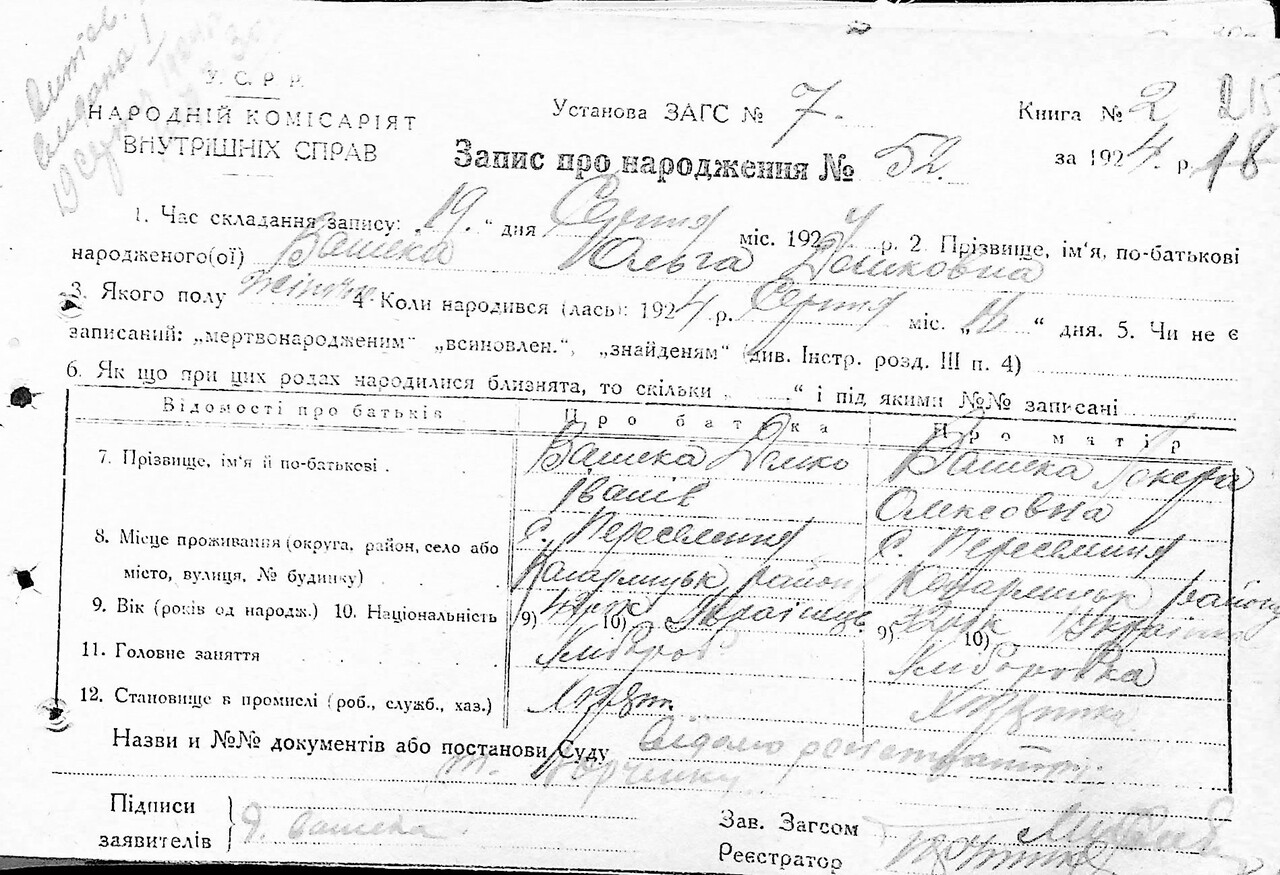 Витяг
видана!
19 Серп 1924 р.
215
У. С. Р. Р.
НАРОДНІЙ КОМІСАРІЯТ
ВНУТРІШНІХ СПРАВ
Установа ЗАГС № 7.
Книга № 2
Запис про народження № 52.
за 1924. р. 18
1. Час складання запису: „19.“ дня Серпня міс. 1924 р. 2. Прізвище, ім'я, по-батькові
народженого(ої) Вашека Ольга Домковна
3. Якого полу жіноч. 4 Коли народився (лась): 1924 р. Серпня міс. „16“ дня. 5. Чи не є
записаний: „мертвонародженим“ „всиновлен.“, „знайденям“ (див. Інстр. розд. III п. 4)
6. Як що при цих родах народилися близнята, то скільки „ “ і під якими №№ записані
Відомості про батьків Про батька Про матір
7. Прізвище, ім'я й по-батькові . Вашека Домко Вашека
Іванів Олексовна
8. Місце проживання (округа, район, село або с. Переселення с. Переселення
місто, вулиця, № будинку) Кагарлицьк району Кагарлицьк району
9. Вік (років од народж.) 10. Національність 9) 10) Українець 9) 10)
11. Головне заняття Хлібороб Хліборобка
12. Становище в промислі (роб., служб., хаз.)
Назви и №№ документів або постанови Суду Відомо
Підписи
заявителів Д. Вашека
Зав. Загсом
Реєстратор